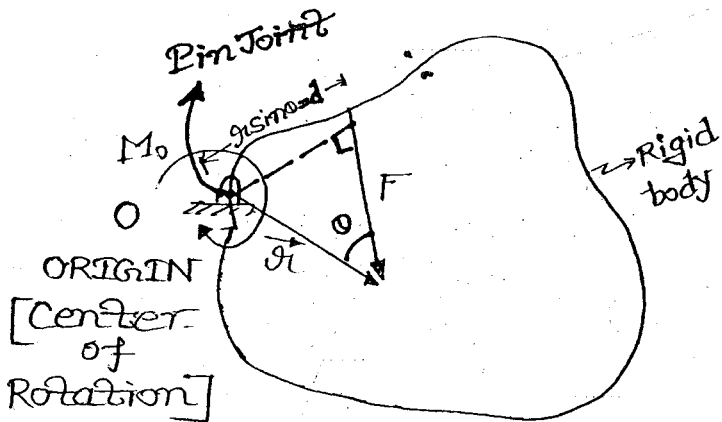 Pin Joint
r sinθ=d
M₀
F
Rigid
body
O
θ
r⃗
ORIGIN
[Center
of
Rotation]